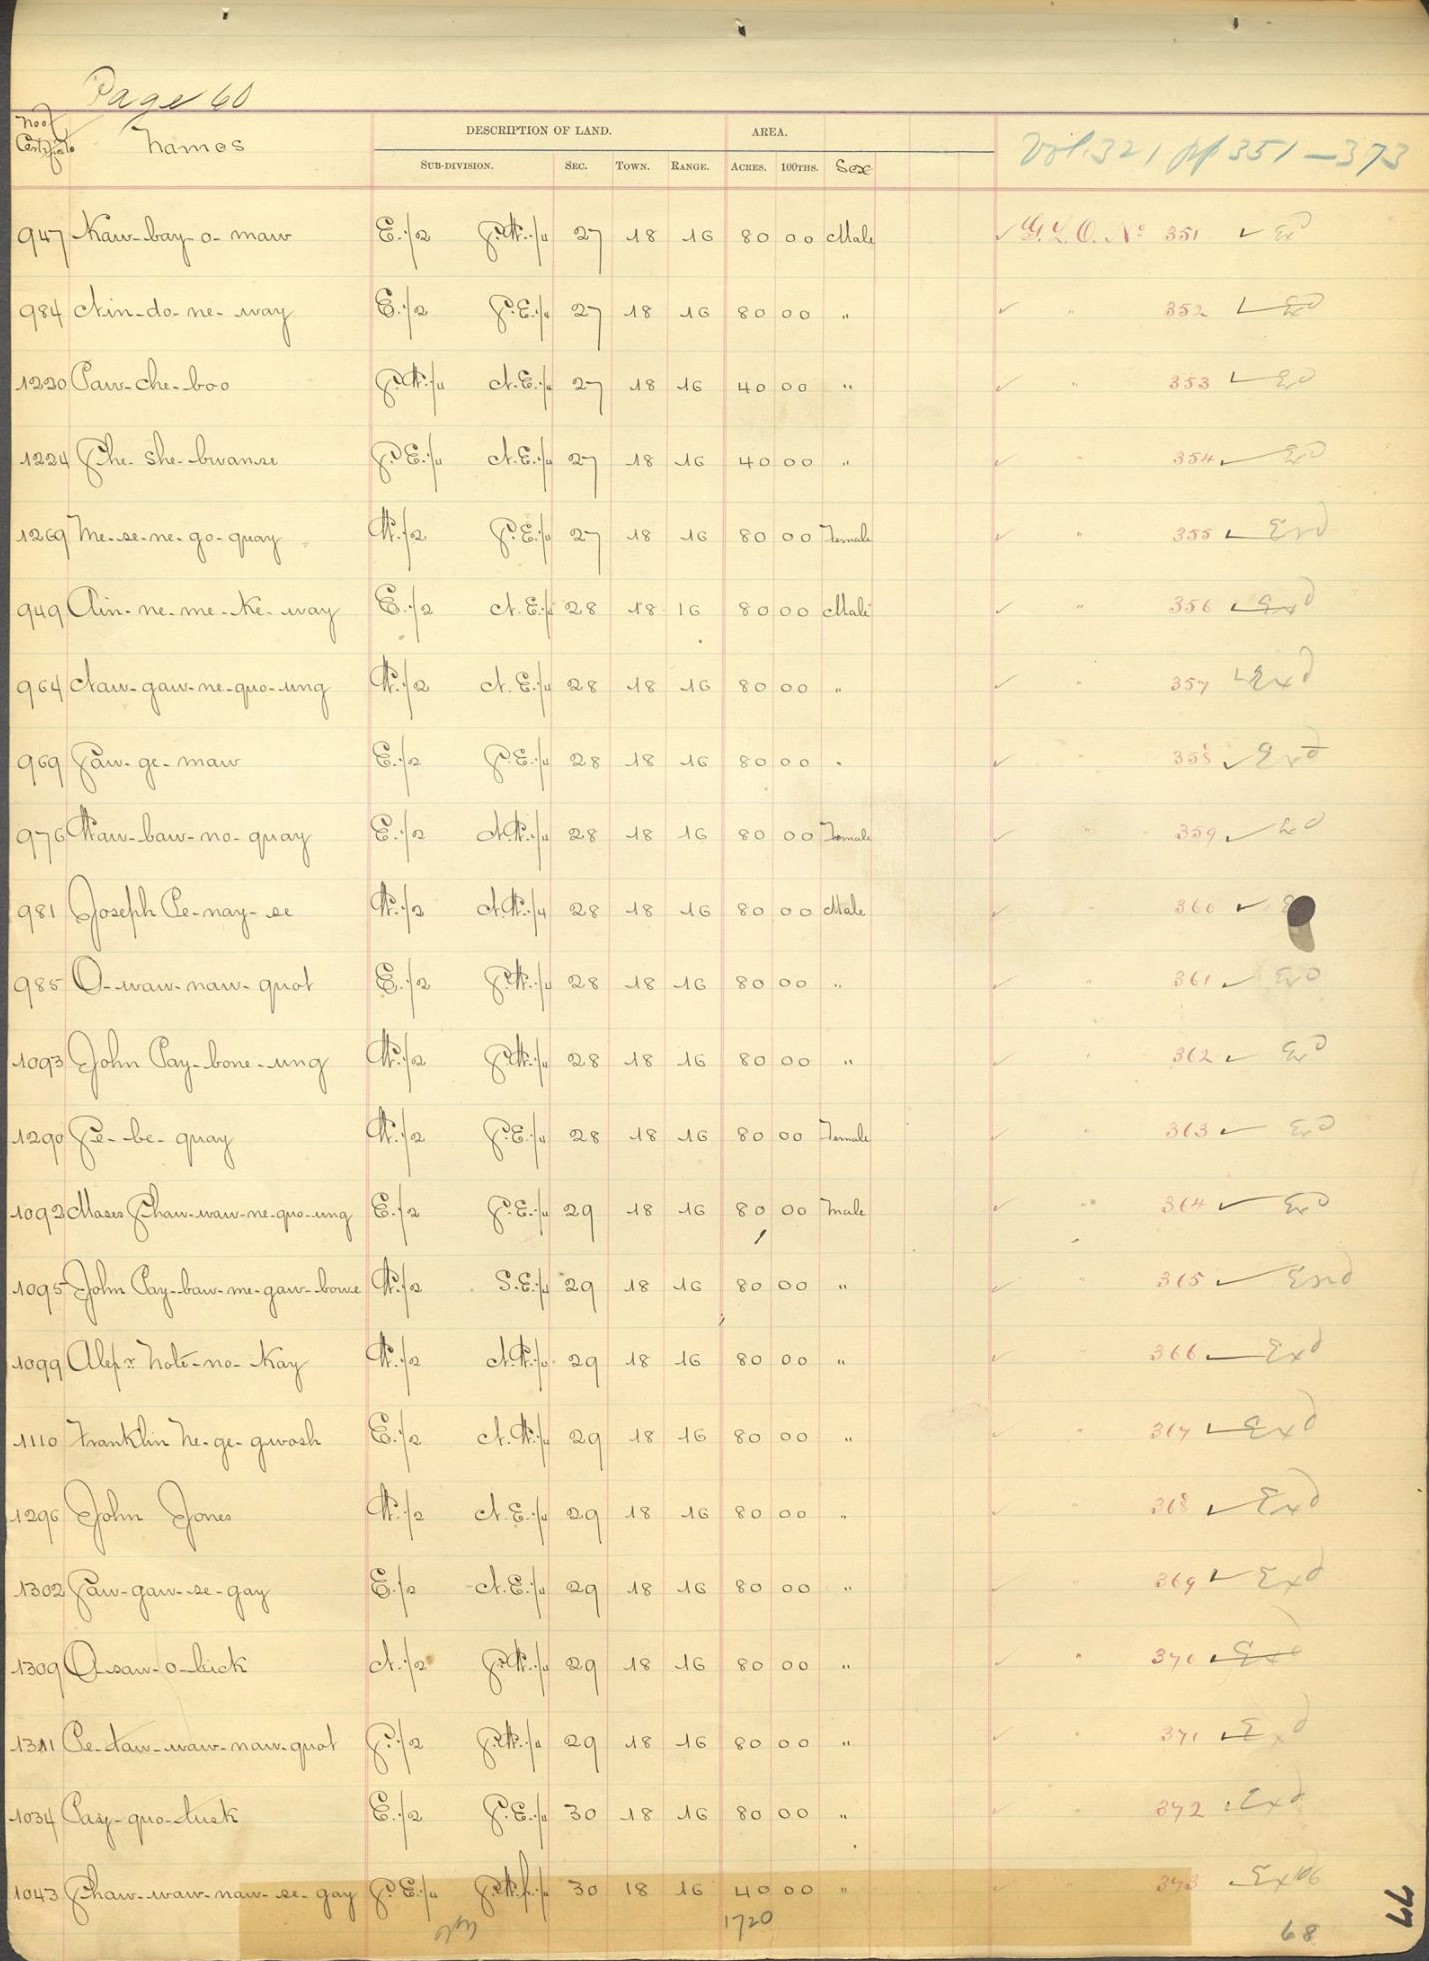 Page 60
No of Certificate Names DESCRIPTION OF LAND. AREA. Vol. 321 pp 351–373
SUB-DIVISION. SEC. TOWN. RANGE. ACRES. 100THS. Sex
947 Kaw-bay-o-maw E. 1/2 S.W. 1/4 27 18 16 80 00 Male ✓ G.L.O. No 351 ✓ Exd
984 Nin-do-ne-way E. 1/2 S.E. 1/4 27 18 16 80 00 " ✓ " 352 ✓ Exd
1220 Paw-che-boo S.W. 1/4 N.E. 1/4 27 18 16 40 00 " ✓ " 353 ✓ Exd
1224 She-she-bwanse S.E. 1/4 N.E. 1/4 27 18 16 40 00 " ✓ " 354 ✓ Exd
1269 Me-se-ne-go-quay W. 1/2 S.E. 1/4 27 18 16 80 00 Female ✓ " 355 ✓ Exd
949 Ain-ne-me-Ke-way E. 1/2 N.E. 1/4 28 18 16 80 00 Male ✓ " 356 ✓ Exd
964 Naw-gaw-ne-quo-ung W. 1/2 N.E. 1/4 28 18 16 80 00 " ✓ " 357 ✓ Exd
969 Saw-ge-maw E. 1/2 S.E. 1/4 28 18 16 80 00 " ✓ 358 ✓ Exd
976 Waw-baw-no-quay E. 1/2 N.W. 1/4 28 18 16 80 00 Female ✓ " 359 ✓ Exd
981 Joseph Pe-nay-se W. 1/2 N.W. 1/4 28 18 16 80 00 Male ✓ " 360 ✓
985 O-waw-naw-quot E. 1/2 S.W. 1/4 28 18 16 80 00 " ✓ " 361 ✓ Exd
1093 John Pay-bone-ung W. 1/2 S.W. 1/4 28 18 16 80 00 " ✓ " 362 ✓ Exd
1290 Se-be-quay W. 1/2 S.E. 1/4 28 18 16 80 00 Female ✓ " 363 ✓ Exd
1092 Moses Shaw-waw-ne-quo-ung E. 1/2 S.E. 1/4 29 18 16 80 00 Male ✓ " 364 ✓ Exd
1095 John Pay-baw-me-gaw-bowe W. 1/2 S.E. 1/4 29 18 16 80 00 " ✓ " 365 ✓ Exd
1099 Alexr Note-no-Kay W. 1/2 N.W. 1/4 29 18 16 80 00 " ✓ " 366 ✓ Exd
1110 Franklin Ne-ge-gwosh E. 1/2 N.W. 1/4 29 18 16 80 00 " ✓ " 367 ✓ Exd
1296 John Jones W. 1/2 N.E. 1/4 29 18 16 80 00 " ✓ " 368 ✓ Exd
1302 Saw-gaw-se-gay E. 1/2 N.E. 1/4 29 18 16 80 00 " ✓ " 369 ✓ Exd
1309 O-saw-o-bick N. 1/2 S.W. 1/4 29 18 16 80 00 " ✓ " 370 ✓ Exd
1311 Pe-taw-waw-naw-quot S. 1/2 S.W. 1/4 29 18 16 80 00 " ✓ " 371 ✓ Exd
1034 Pay-quo-tusk E. 1/2 S.E. 1/4 30 18 16 80 00 " ✓ " 372 ✓ Exd
1043 Shaw-waw-naw-se-gay S.E. 1/4 30 18 16 40 00 " ✓ " 373
1720 68
77